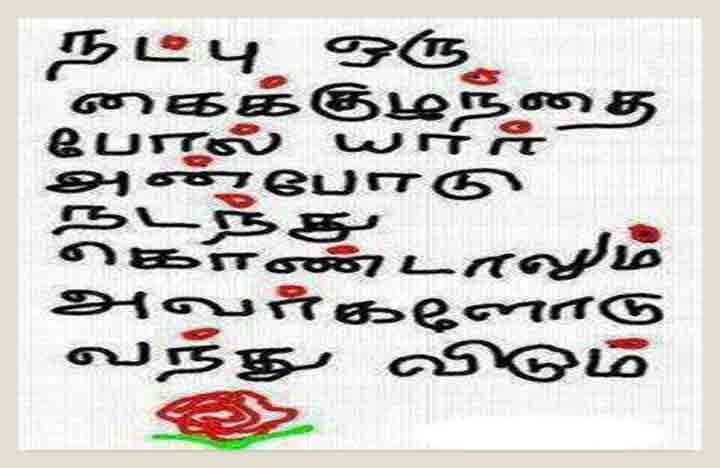 நட்பு ஒரு
கைக்குழந்தை
போல் யார்
அன்போடு
நடந்து
கொண்டாலும்
அவர்களோடு
வந்து விடும்